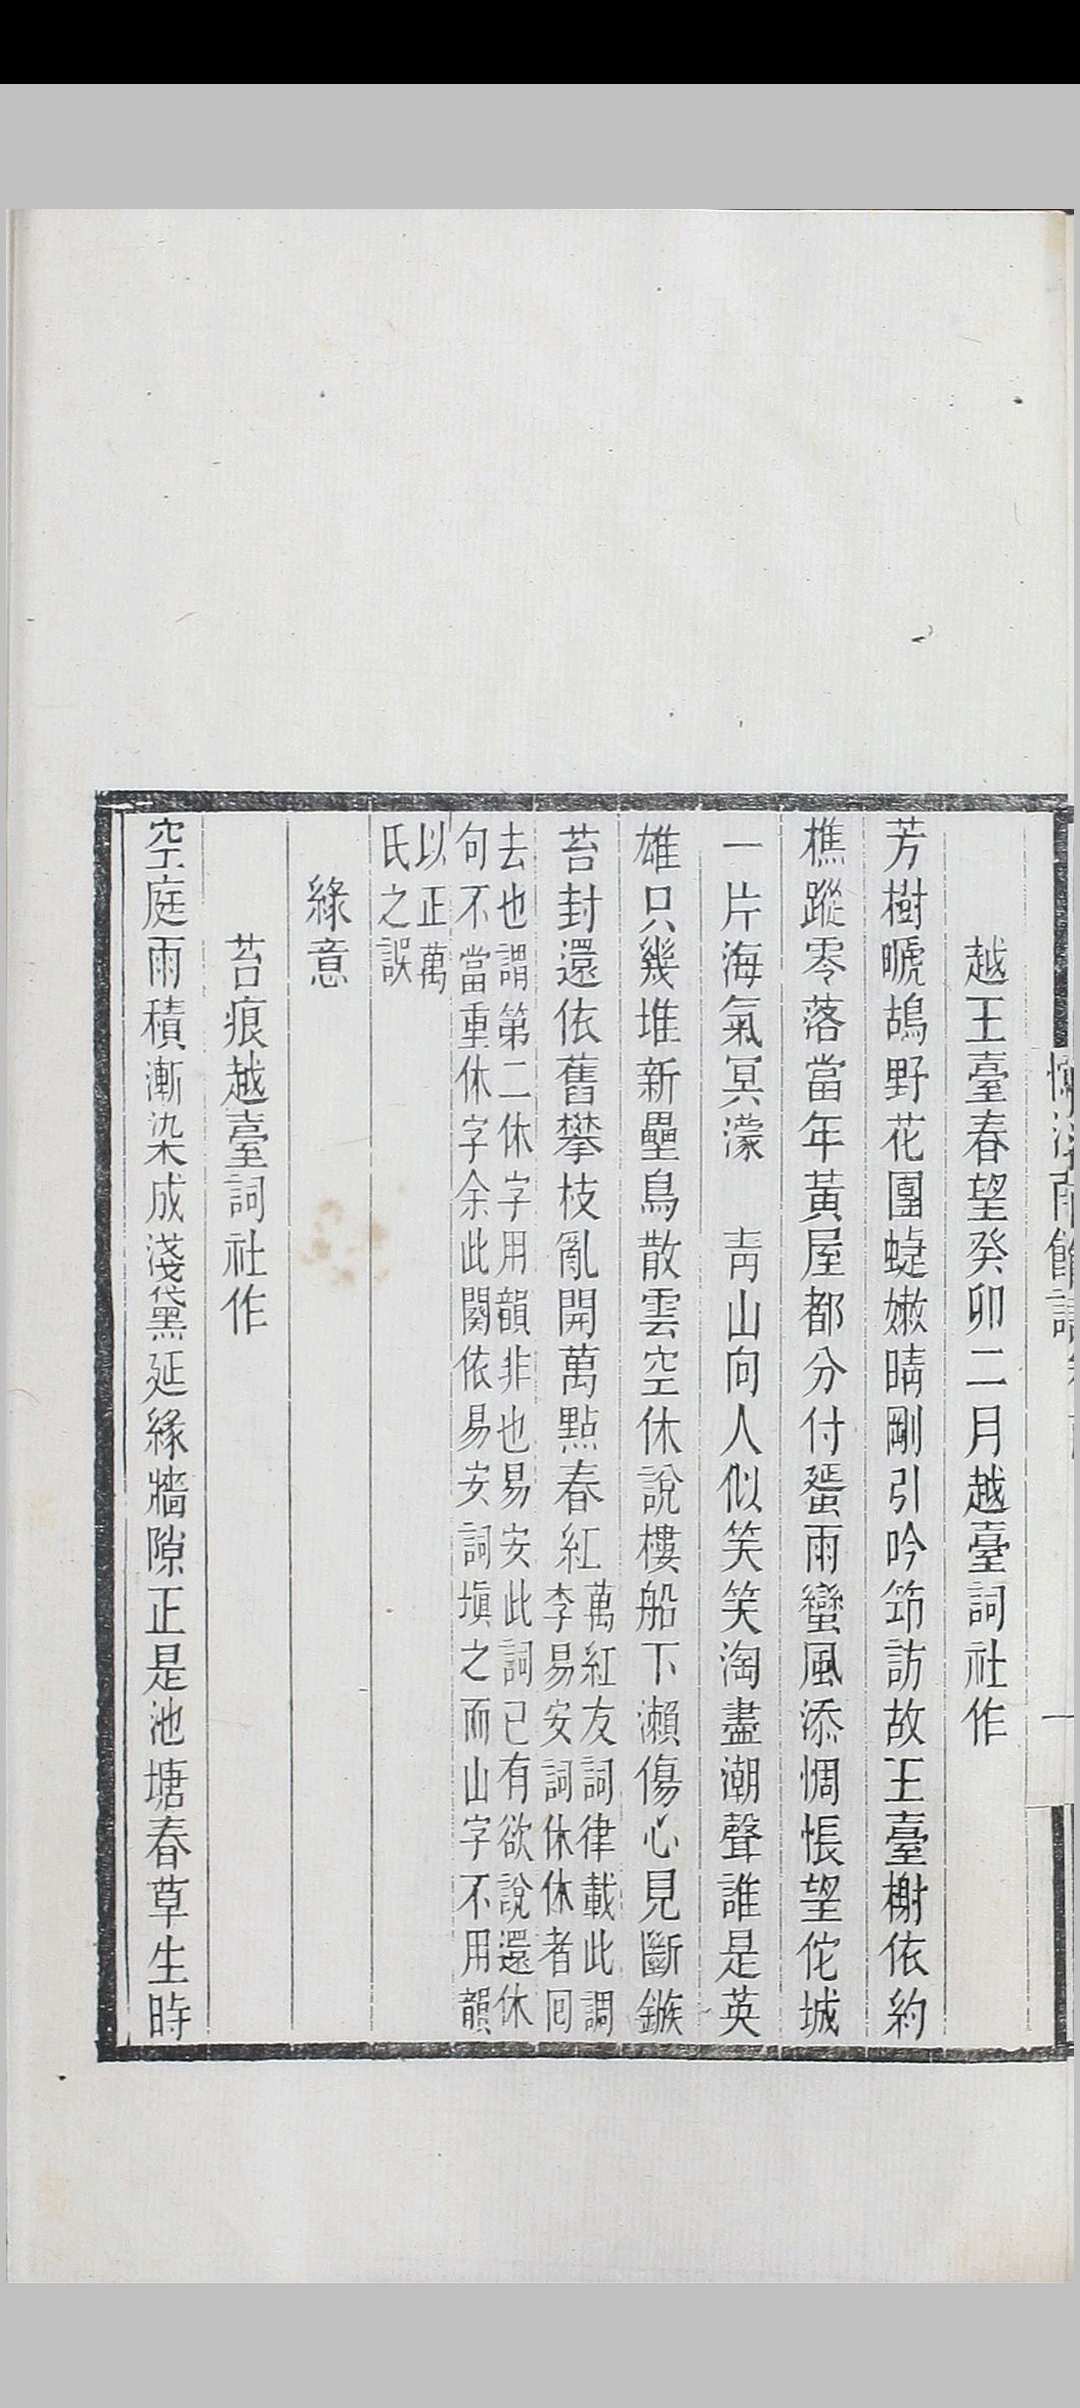 越王臺春望癸卯二月越臺詞社作
芳樹嗁鴣野花團蜨嫩晴剛引吟筇訪故王臺榭依約
樵蹤零落當年黃屋都分付蜑雨蠻風添惆悵望佗城
一片海氣冥濛　青山向人似笑笑淘盡潮聲誰是英
雄只幾堆新壘鳥散雲空休說樓船下瀨傷心見斷鏃
苔封還依舊攀枝亂開萬點春紅
萬紅友詞律載此調
李易安詞休休者回
去也謂第二休字用韻非也易安此詞已有欲說還休
句不當重休字余此闋依易安詞塡之而山字不用韻
以正萬
氏之誤
綠意
苔痕越臺詞社作
空庭雨積漸染成淺黛延緣牆隙正是池塘春草生時